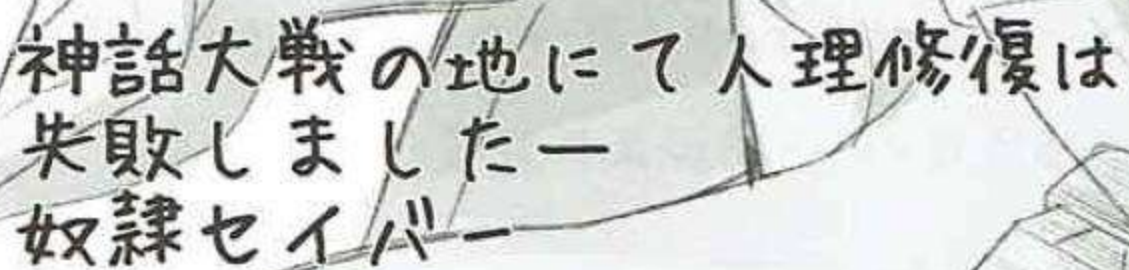 神話大戦の地にて人理修復は
失敗しましたー
奴隷セイバー